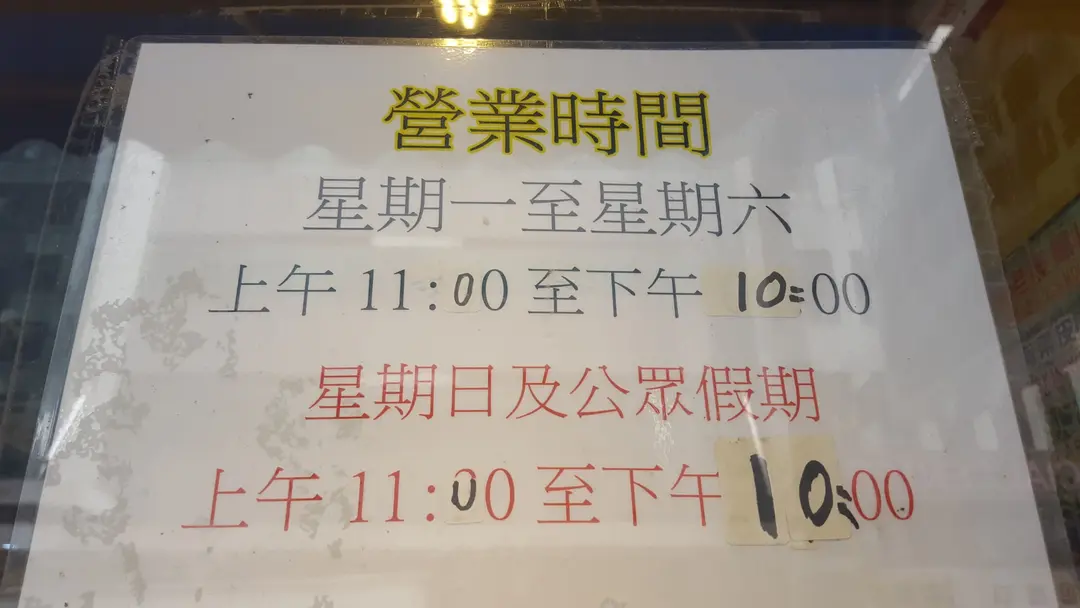 營業時間
星期一至星期六
上午 11:00 至下午 10:00
星期日及公眾假期
上午 11:00 至下午 10:00